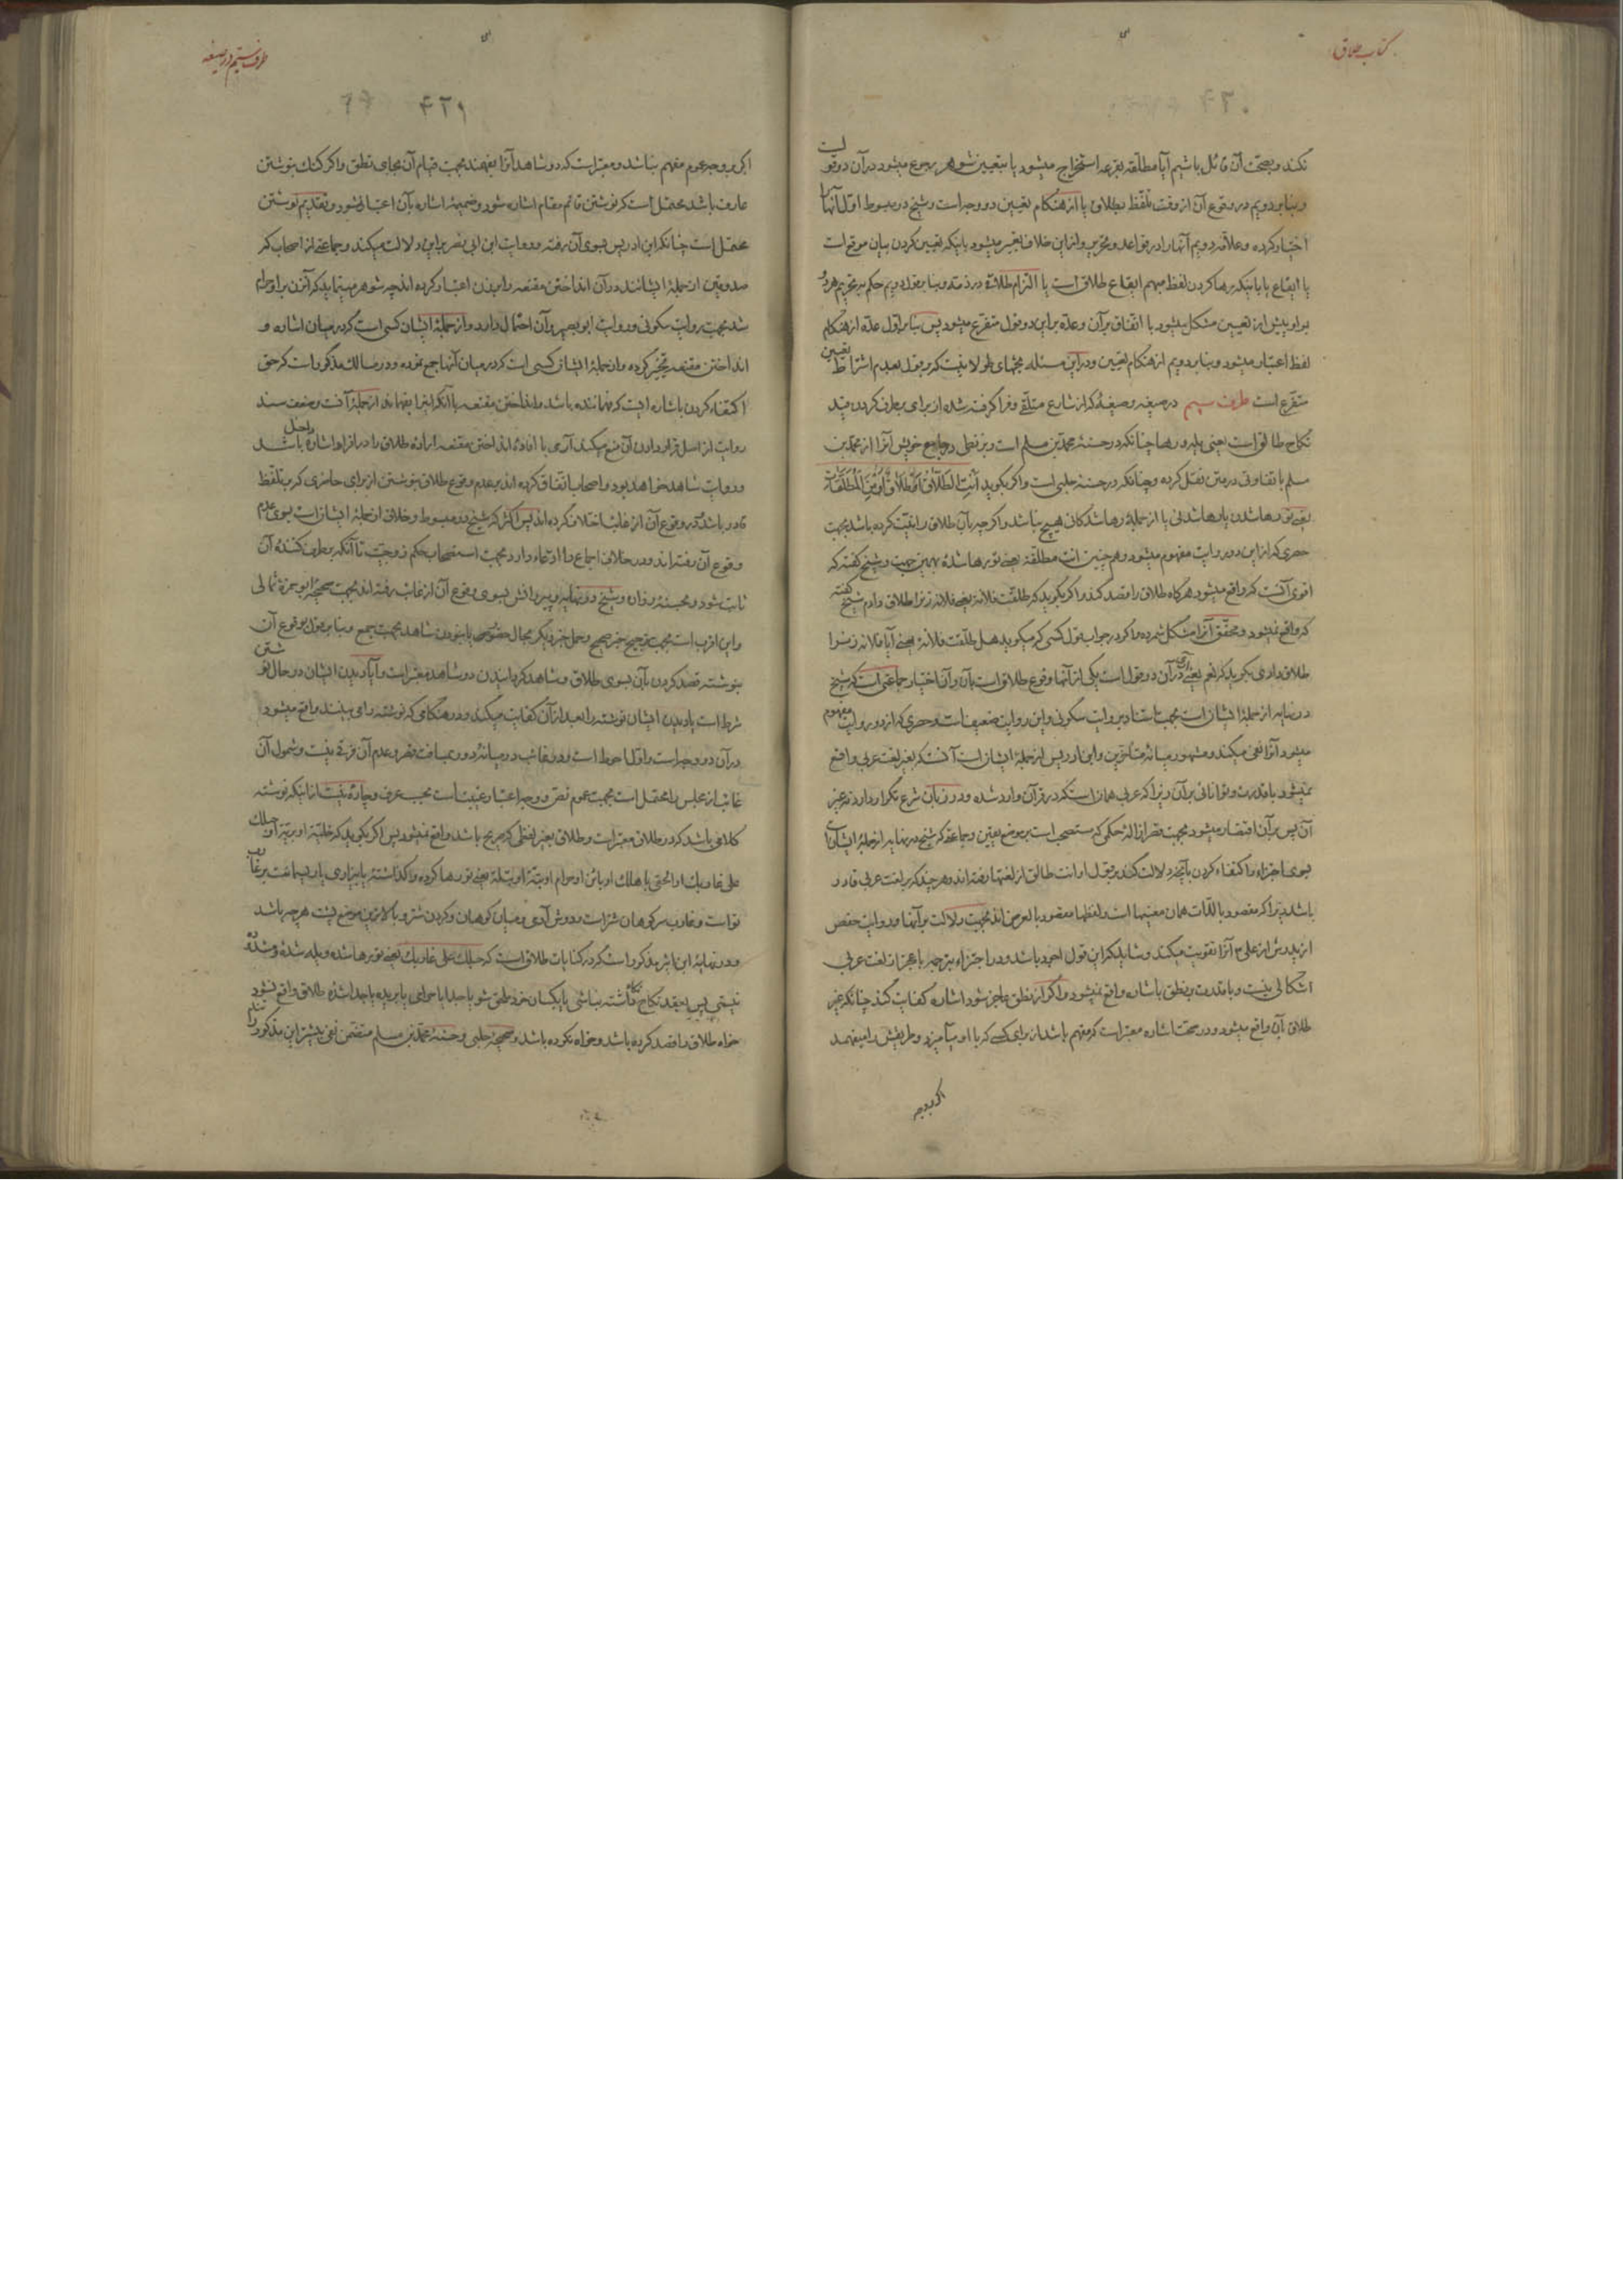 کتاب طلاق
نکند و بصحت آن قائل باشیم آیا مطلّقه بقرعه استخراج میشود یا بتعیین شوهر رجوع میشود در آن دو قول است
و بنابر دویم در وقوع آن از وقت تلفّظ بطلاق یا از هنگام تعیین دو وجه است و شیخ در مبسوط اوّل آنها را
اختیار کرده و علّامه دویم آنها را در قواعد و تحریر و از این خلاف تعبیر میشود باینکه تعیین کردن بیان موقع است
یا ایقاع یا باینکه رها کردن لفظ مبهم ایقاع طلاق است یا التزام طلاق در ذمّه و بنابر قول دویم حکم بتحریم هر دو
بر او پیش از تعیین مشکل میشود با اتّفاق بر آن و عدّه بر این دو قول متفرع میشود پس بنابر اوّل عدّه از هنگام
لفظ اعتبار میشود و بنابر دویم از هنگام تعیین و در این مسئله بحثهای طولانیست که بر قول بعدم اشتراط تعیین
متفرع است طرف سیم در صیغه و صیغهٔ که از شارع متلقّی و فرا گرفته شده از برای برطرف کردن قید
نکاح طالق است یعنی یله و رها چنانکه در حسنهٔ محمد بن مسلم است و بزنطی در جامع خویش آنرا از محمد بن
مسلم با تفاوتی در متن نقل کرده و چنانکه در حسنهٔ حلبی است و اگر بگوید انت الطلاق او طلاق او من المطلقات
یعنی تو رها شدن یا رها شدنی یا از جملهٔ رها شدگان هیچ نباشد و اگرچه بآن طلاق را نیّت کرده باشد بجهت
حصری که از این دو روایت مفهوم میشود و همچنین انت مطلقة یعنی تو رها شدهٔ بهمین جهت و شیخ گفته که
اقوی آنست که واقع میشود هرگاه طلاق را قصد کند و اگر بگوید که طلّقت فلانة یعنی فلانه زنرا طلاق دادم شیخ گفته
که واقع نمیشود و محقّق آنرا مشکل شمرده و اگر در جواب قول کسی که میگوید هل طلّقت فلانة یعنی آیا فلانه زنرا
طلاق دادی بگوید که نعم یعنی آری در آن دو قول است یکی از آنها وقوع طلاق است بآن و آن اختیار جماعتی است که شیخ
در نهایه از جملهٔ ایشان است بجهت استناد بروایت سکونی و این روایت ضعیف است و حصری که از دو روایت مفهوم
میشود آنرا نفی میکند و مشهور میانهٔ متأخّرین و ابن ادریس از جملهٔ ایشان است آنست که بغیر لغت عربی واقع
نمیشود با قدرت و توانائی بر آن زیرا که عربی همان است که در قرآن وارد شده و در زبان شرع تکرار دارد نه غیر
آن پس بر آن اقتصار میشود بجهت فقر ازالهٔ حکمی که مستصحب است بر موضع یقین و جماعتی که شیخ در نهایه از جملهٔ ایشان است
بسوی اجتزاء و اکتفاء کردن بآنچه دلالت کند بر قول او انت طالق از لغتها رفته‌اند و هر چند که بر لغت عربی قادر
باشد زیرا که مقصود بالذّات همان معنیها است و لفظها مقصود بالعرض‌اند بجهت دلالت بر آنها و روایت حفص
از پدرش از علی ع آنرا تقویت میکند و شاید که این قول اجود باشد و در اجتزاء بترجمه با عجز از لغت عربی
اشکالی نیست و با قدرت بر نطق باشاره واقع نمیشود و اگر از نطق عاجز شود اشاره کفایت کند چنانکه غیر
طلاق بآن واقع میشود و در صحّت اشاره معتبر است که مفهم باشد از برای کسی که با او میآمیزد و طریقش را میفهمد
اگر بوجه
طرف سیم در صیغه
۴۲۱
اگر بر وجه عموم مفهم نباشد و معتبر است که دو شاهد آنرا بفهمند بجهت قیام آن بجای نطق و اگر گنگ بنوشتن
عارف باشد محتمل است که نوشتن قائم مقام اشاره شود و ضمیمهٔ اشاره بآن اعتبار نشود و تقدیم نوشتن
محتمل است چنانکه ابن ادریس بسوی آن رفته و روایت ابن ابی نصر بر این دلالت میکند و جماعتی از اصحاب که
صدوقین از جملهٔ ایشانند در آن انداختن مقنعه را بر زن اعتبار کرده‌اند چه شوهر مینماید که آنزن بر او حرام
شد بجهت روایت سکونی و روایت ابو بصیر بر آن احتمال دارد و از جملهٔ ایشان کسی است که در میان اشاره و
انداختن مقنعه تخییر کرده و از جملهٔ ایشان کسی است که در میان آنها جمع نموده و در مسالک مذکور است که حق
اکتفاء کردن باشاره ایست که فهماننده باشد و انداختن مقنعه با آنکه اینرا بفهماند از جملهٔ آنست و ضعف سند
روایت از اصل قرار دادن آن منع میکند آری با افادهٔ انداختن مقنعه ارادهٔ طلاق را در افراد اشاره داخل باشد
و روایت شاهد خواهد بود و اصحاب اتفاق کرده‌اند بر عدم وقوع طلاق بنوشتن از برای حاضری که بر تلفّظ
قادر باشد و در وقوع آن از غایب اختلاف کرده‌اند پس اکثر که شیخ در مبسوط و خلاف از جملهٔ ایشان است بسوی عدم
وقوع آن رفته‌اند و در خلاف اجماع را ادّعاء دارد بجهت استصحاب حکم زوجیّت تا آنکه برطرف کنندهٔ آن
ثابت شود و بحسنهٔ زراره و شیخ در نهایه و پیروانش بسوی وقوع آن از غایب رفته‌اند بجهت صحیحهٔ ابو حمزهٔ ثمالی
و این اقرب است بجهت ترجیح خبر صحیح و حمل خبر دیگر بحال حضور یا نبودن شاهد بجهت جمع و بنابر قول بوقوع آن
بنوشته قصد کردن بآن بسوی طلاق و شاهد گردانیدن دو شاهد معتبر است و آیا دیدن ایشان در حال نوشتن
شرط است یا دیدن ایشان نوشته را بعد از آن کفایت میکند و در هنگامی که نوشته را می بینند واقع میشود
در آن دو وجه است و اوّل احوط است و در غائب در میانهٔ دوری مسافت قصر و عدم آن فرقی نیست و شمول آن
غائب از مجلس را محتمل است بجهت عموم نص و وجه اعتبار غیبت است بحسب عرف و چارهٔ نیست از اینکه نوشته
کلامی باشد که در طلاق معتبر است و طلاق بغیر لفظی که صریح باشد واقع نمیشود پس اگر بگوید که خلیّة او بریّة او حبلک
علی غاربک او الحقی باهلک او بائن او حرام او بتّة او بتلة یعنی تو رها کرده و واگذاشتهٔ یا بیزاری یا ریسمانت بر غارب
تو است و غارب سرکوهان شتر است و دوش آدمی و میان کوهان و گردن شتر و بالاترین موضع پشت هر چه باشد
و در نهایهٔ ابن اثیر مذکور است که در کنایات طلاق است که حبلک علی غاربک یعنی تو رها شده و یله شدهٔ
نیستی پس بعقد نکاح باز داشته نباشی یا بکسان خود ملحق شو یا جدا یا حرامی یا بریده یا جدا شدهٔ طلاق واقع نشود
خواه طلاق را قصد کرده باشد و خواه نکرده باشد و صحیحهٔ حلبی و حسنهٔ محمد بن مسلم متضمّن نفی بیشتر این مذکور را